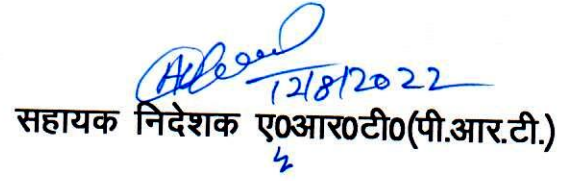 12/8/2022
सहायक निदेशक ए०आर०टी०(पी.आर.टी.)